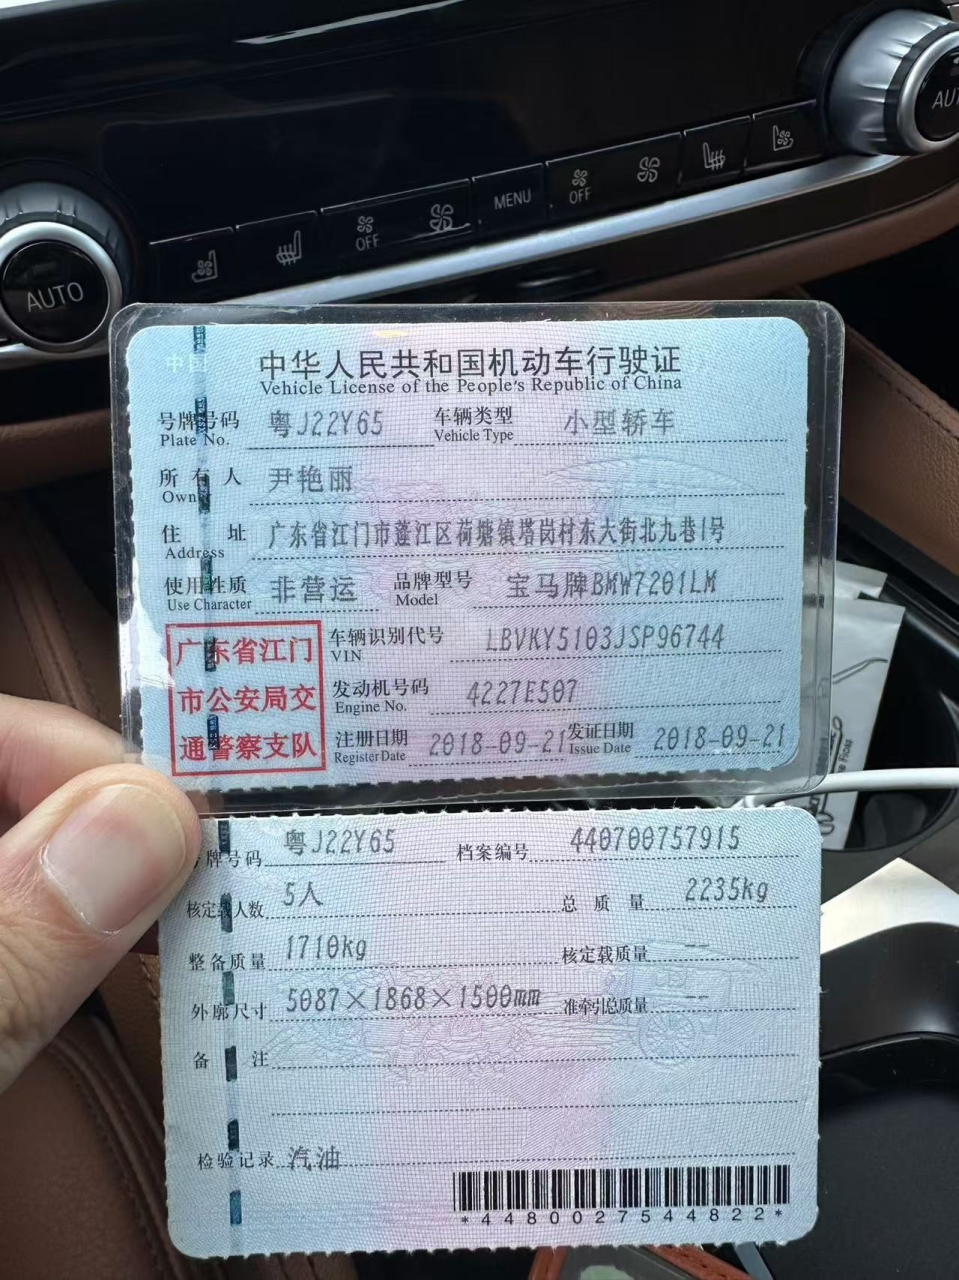 AUTO
OFF
MENU
OFF
AUTO
中国
中华人民共和国机动车行驶证
Vehicle License of the People's Republic of China
号牌号码 粤J22Y65 车辆类型 小型轿车
Plate No. Vehicle Type
所有人 尹艳丽
Owner
住址 广东省江门市蓬江区荷塘镇塔岗村东大街北九巷1号
Address
使用性质 非营运 品牌型号 宝马牌BMW7201LM
Use Character Model
广东省江门
市公安局交
通警察支队
车辆识别代号 LBVKY5103JSP96744
VIN
发动机号码 4227E507
Engine No.
注册日期 2018-09-21 发证日期 2018-09-21
Register Date Issue Date
号牌号码 粤J22Y65 档案编号 440700757915
核定载人数 5人 总质量 2235kg
整备质量 1710kg 核定载质量 --
外廓尺寸 5087×1868×1500mm 准牵引总质量 --
备注
检验记录 汽油
*4480027544822*